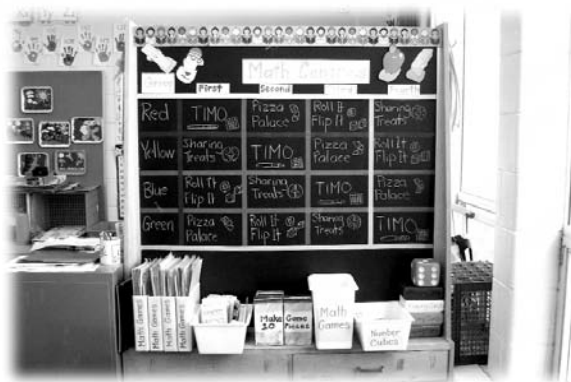 Math Centres
Group First Second Third Fourth
Red
TIMO
Pizza
Palace
Roll It
Flip It
Sharing
Treats
Yellow
Sharing
Treats
TIMO
Pizza
Palace
Roll It
Flip It
Blue
Roll It
Flip It
Sharing
Treats
TIMO
Pizza
Palace
Green
Pizza
Palace
Roll It
Flip It
Sharing
Treats
TIMO
Math Games
Math Games
Math Games
Math Games
Make
10
Game
Pieces
Math
Games
Number
Cubes